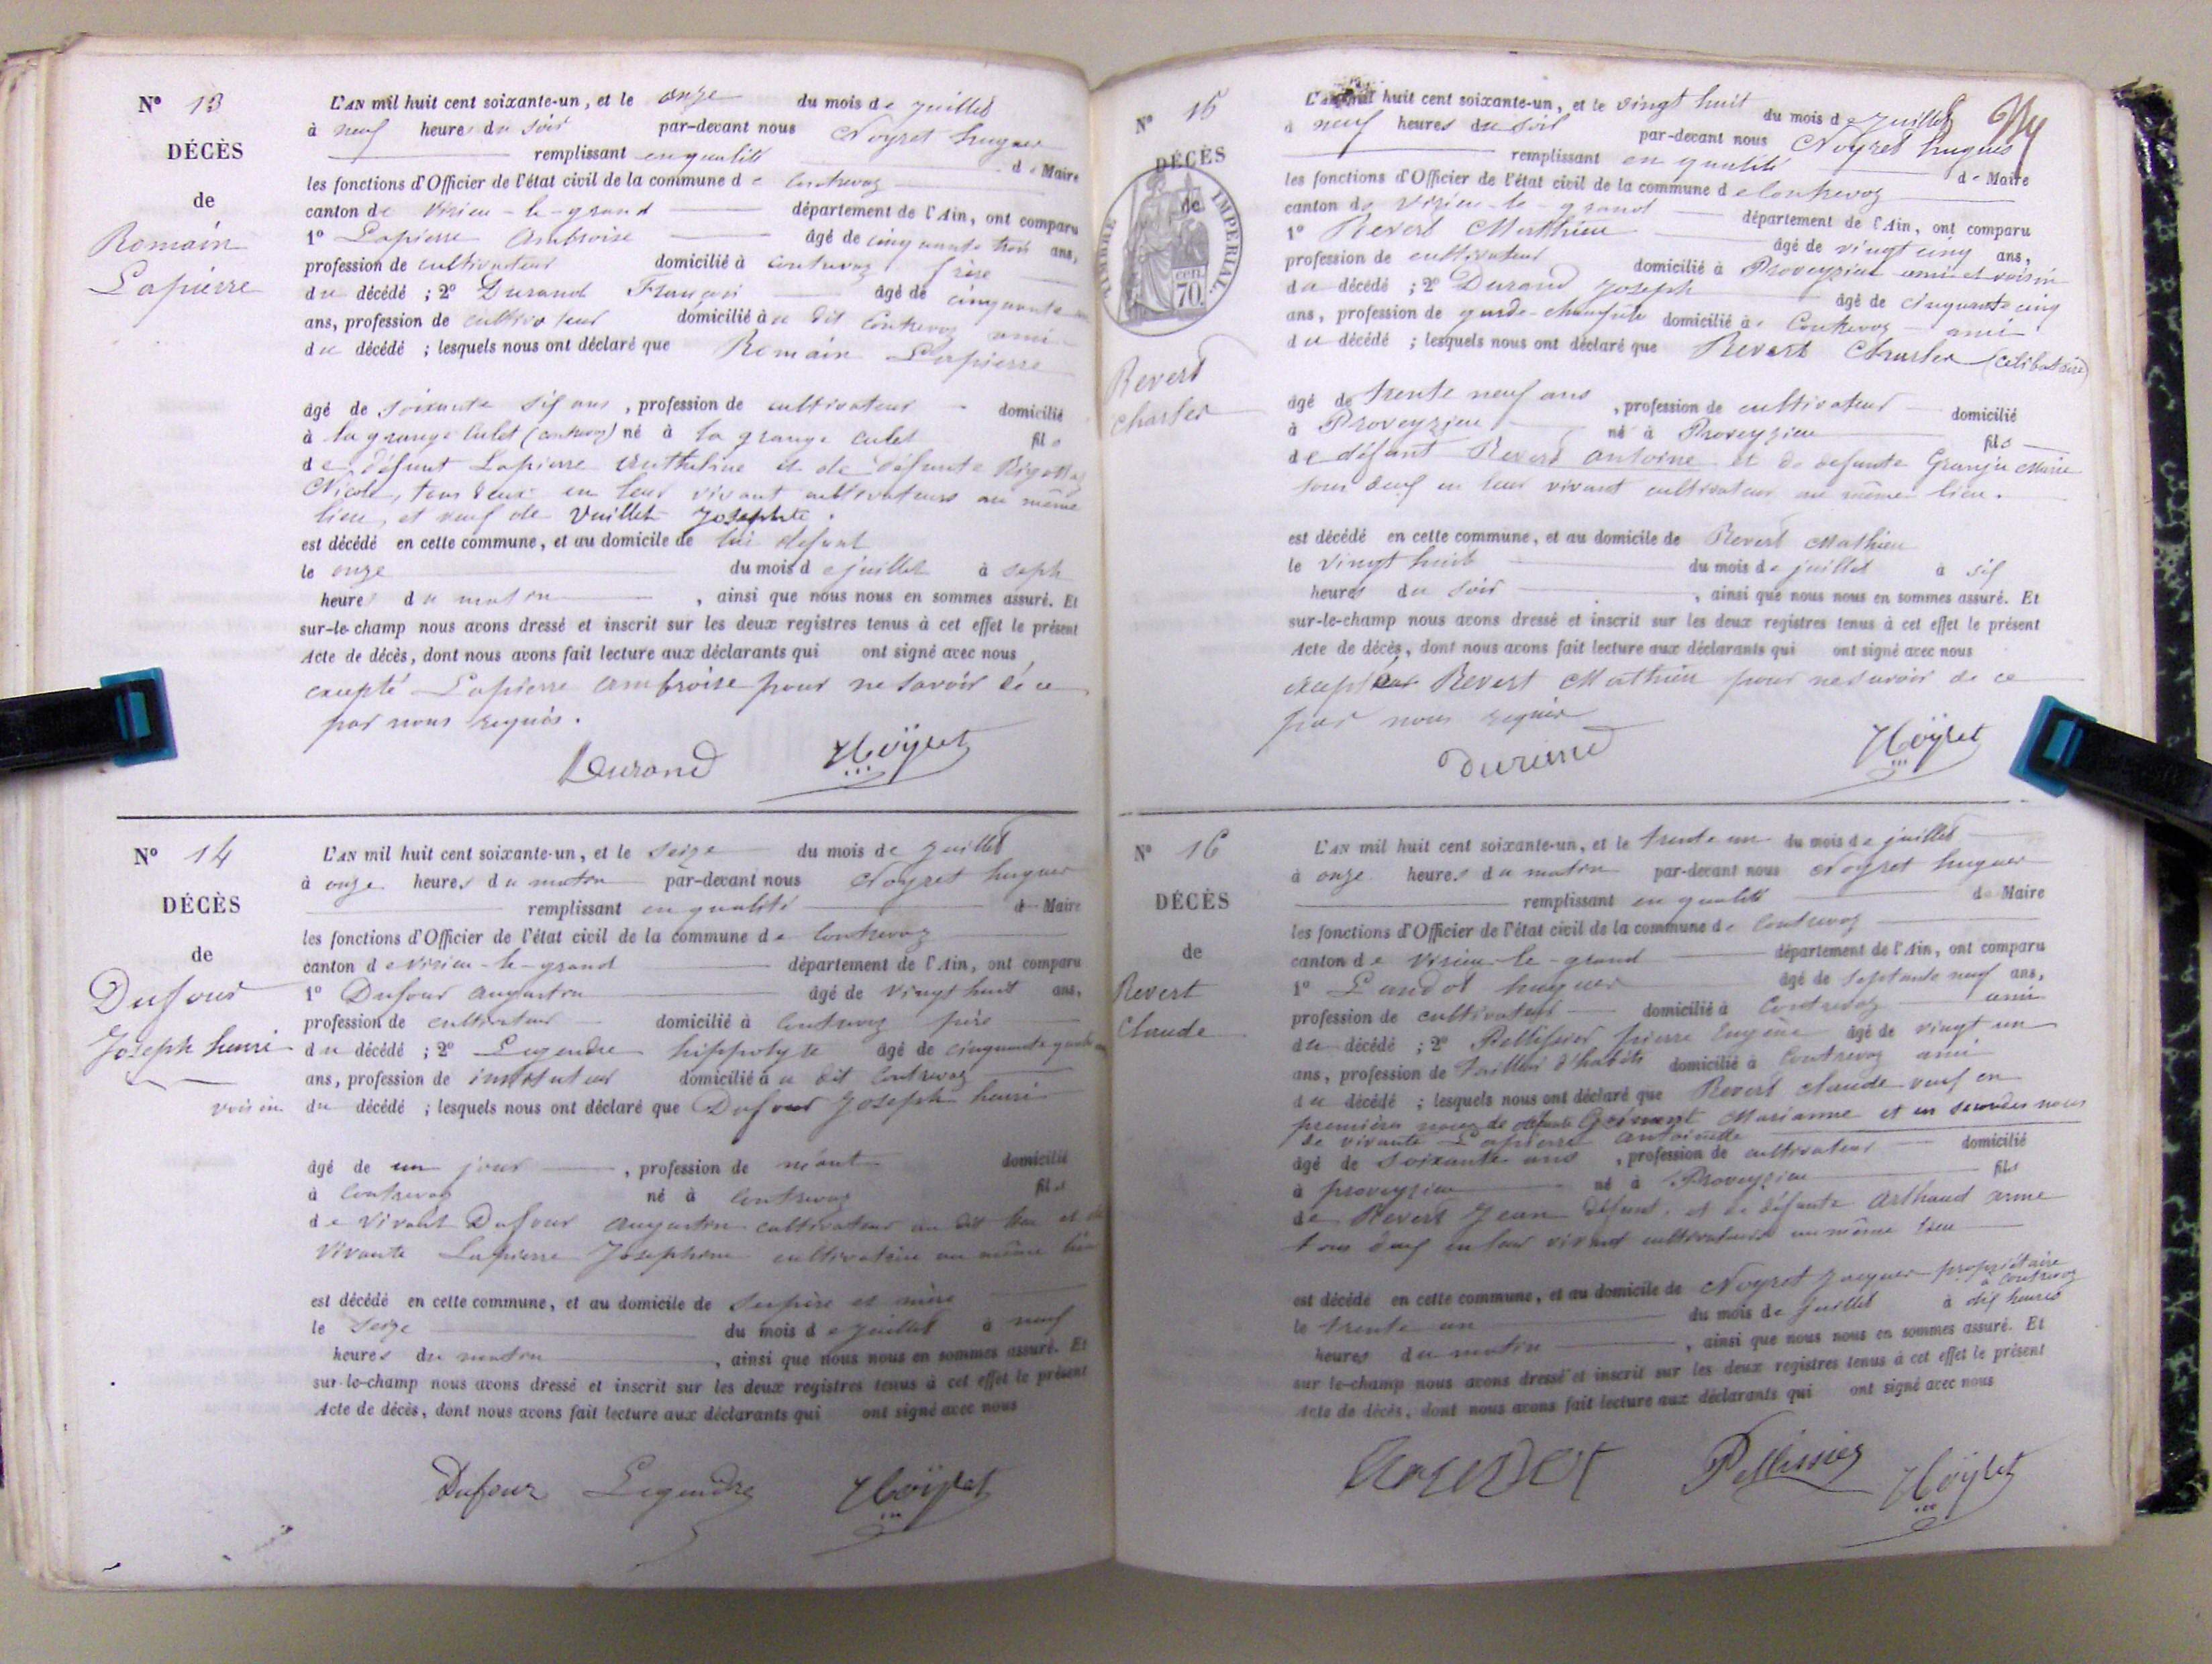 N° 13
DÉCÈS
de
Romain
Lapierre
L'AN mil huit cent soixante-un, et le onze du mois de juillet
à neuf heures du soir par-devant nous Noyret hugues
remplissant en qualité de Maire
les fonctions d'Officier de l'état civil de la commune de Contrevoz
canton de Virieu-le-grand département de l'Ain, ont comparu
1° Lapierre Ambroise âgé de cinquante trois ans,
profession de cultivateur domicilié à Contrevoz frère
du décédé ; 2° Durand François âgé de cinquante
ans, profession de cultivateur domicilié à u dit Contrevoz ami
du décédé ; lesquels nous ont déclaré que Romain Lapierre
âgé de soixante six ans, profession de cultivateur domicilié
à la grange Culet (contrevoz) né à la grange culet fils
de défunt Lapierre Anthelme et de défunte
Nicole, tous deux en leur vivant cultivateurs au même
lieu, et veuf de Vuillet Josephte.
est décédé en cette commune, et au domicile de lui défunt
le onze du mois de juillet à sept
heures du matin, ainsi que nous nous en sommes assuré. Et
sur-le-champ nous avons dressé et inscrit sur les deux registres tenus à cet effet le présent
Acte de décès, dont nous avons fait lecture aux déclarants qui ont signé avec nous
excepté Lapierre ambroise pour ne savoir de ce
par nous requis.
Durand Noÿret
N° 14
DÉCÈS
de
Dufour
Joseph henri
L'AN mil huit cent soixante-un, et le seize du mois de juillet
à onze heures du matin par-devant nous Noyret hugues
remplissant en qualité de Maire
les fonctions d'Officier de l'état civil de la commune de Contrevoz
canton de Virieu-le-grand département de l'Ain, ont comparu
1° Dufour augustin âgé de vingt huit ans,
profession de cultivateur domicilié à Contrevoz père
du décédé ; 2° Legendre hippolyte âgé de cinquante
ans, profession de instituteur domicilié à u dit Contrevoz
voisin du décédé ; lesquels nous ont déclaré que Dufour Joseph henri
âgé de un jour, profession de néant domicilié
à Contrevoz né à Contrevoz fils
de vivant Dufour augustin cultivateur au dit lieu et de
vivante Lapierre Josephine cultivatrice au même lieu
est décédé en cette commune, et au domicile de ses père et mère
le seize du mois de juillet à neuf
heures du matin, ainsi que nous nous en sommes assuré. Et
sur-le-champ nous avons dressé et inscrit sur les deux registres tenus à cet effet le présent
Acte de décès, dont nous avons fait lecture aux déclarants qui ont signé avec nous
Dufour Legendre Noÿret
N° 15
DÉCÈS
de
TIMBRE IMPÉRIAL.
70 cen
Revert
Charles
L'AN mil huit cent soixante-un, et le vingt huit du mois de juillet
à neuf heures du soir par-devant nous Noyret hugues
remplissant en qualité de Maire
les fonctions d'Officier de l'état civil de la commune de Contrevoz
canton de Virieu-le-grand département de l'Ain, ont comparu
1° Revert Matthieu âgé de vingt cinq ans,
profession de cultivateur domicilié à Proveyzieu ami et voisin
du décédé ; 2° Durand Joseph âgé de cinquante cinq
ans, profession de garde-champêtre domicilié à Contrevoz ami
du décédé ; lesquels nous ont déclaré que Revert Charles (célibataire)
âgé de trente neuf ans, profession de cultivateur domicilié
à Proveyzieu né à Proveyzieu fils
de défunt Revert antoine et de défunte Granju Marie
tous deux en leur vivant cultivateurs au même lieu.
est décédé en cette commune, et au domicile de Revert Mathieu
le vingt huit du mois de juillet à six
heures du soir, ainsi que nous nous en sommes assuré. Et
sur-le-champ nous avons dressé et inscrit sur les deux registres tenus à cet effet le présent
Acte de décès, dont nous avons fait lecture aux déclarants qui ont signé avec nous
Revert Mathieu pour ne savoir de ce
par nous requis
Durand Noÿret
N° 16
DÉCÈS
de
Revert
Claude
L'AN mil huit cent soixante-un, et le trente un du mois de juillet
à onze heures du matin par-devant nous Noyret hugues
remplissant en qualité de Maire
les fonctions d'Officier de l'état civil de la commune de Contrevoz
canton de Virieu-le-grand département de l'Ain, ont comparu
1° hugues âgé de septante neuf ans,
profession de cultivateur domicilié à Contrevoz ami
du décédé ; 2° Pellissier pierre Eugène âgé de vingt un
ans, profession de tailleur d'habits domicilié à Contrevoz ami
du décédé ; lesquels nous ont déclaré que Revert claude veuf en
premières noces de défunte Marianne et en secondes noces
de vivante Lapierre antoinette
âgé de soixante ans, profession de cultivateur domicilié
à proveyzieu né à Proveyzieu fils
de Revert Jean défunt, et de défunte Arthaud anne
tous deux en leur vivant cultivateurs au même lieu
est décédé en cette commune, et au domicile de Noyret Jacques propriétaire
à Contrevoz
le trente un du mois de juillet à dix heures
heures du matin, ainsi que nous nous en sommes assuré. Et
sur le-champ nous avons dressé et inscrit sur les deux registres tenus à cet effet le présent
Acte de décès, dont nous avons fait lecture aux déclarants qui ont signé avec nous
Pellissier Noÿret